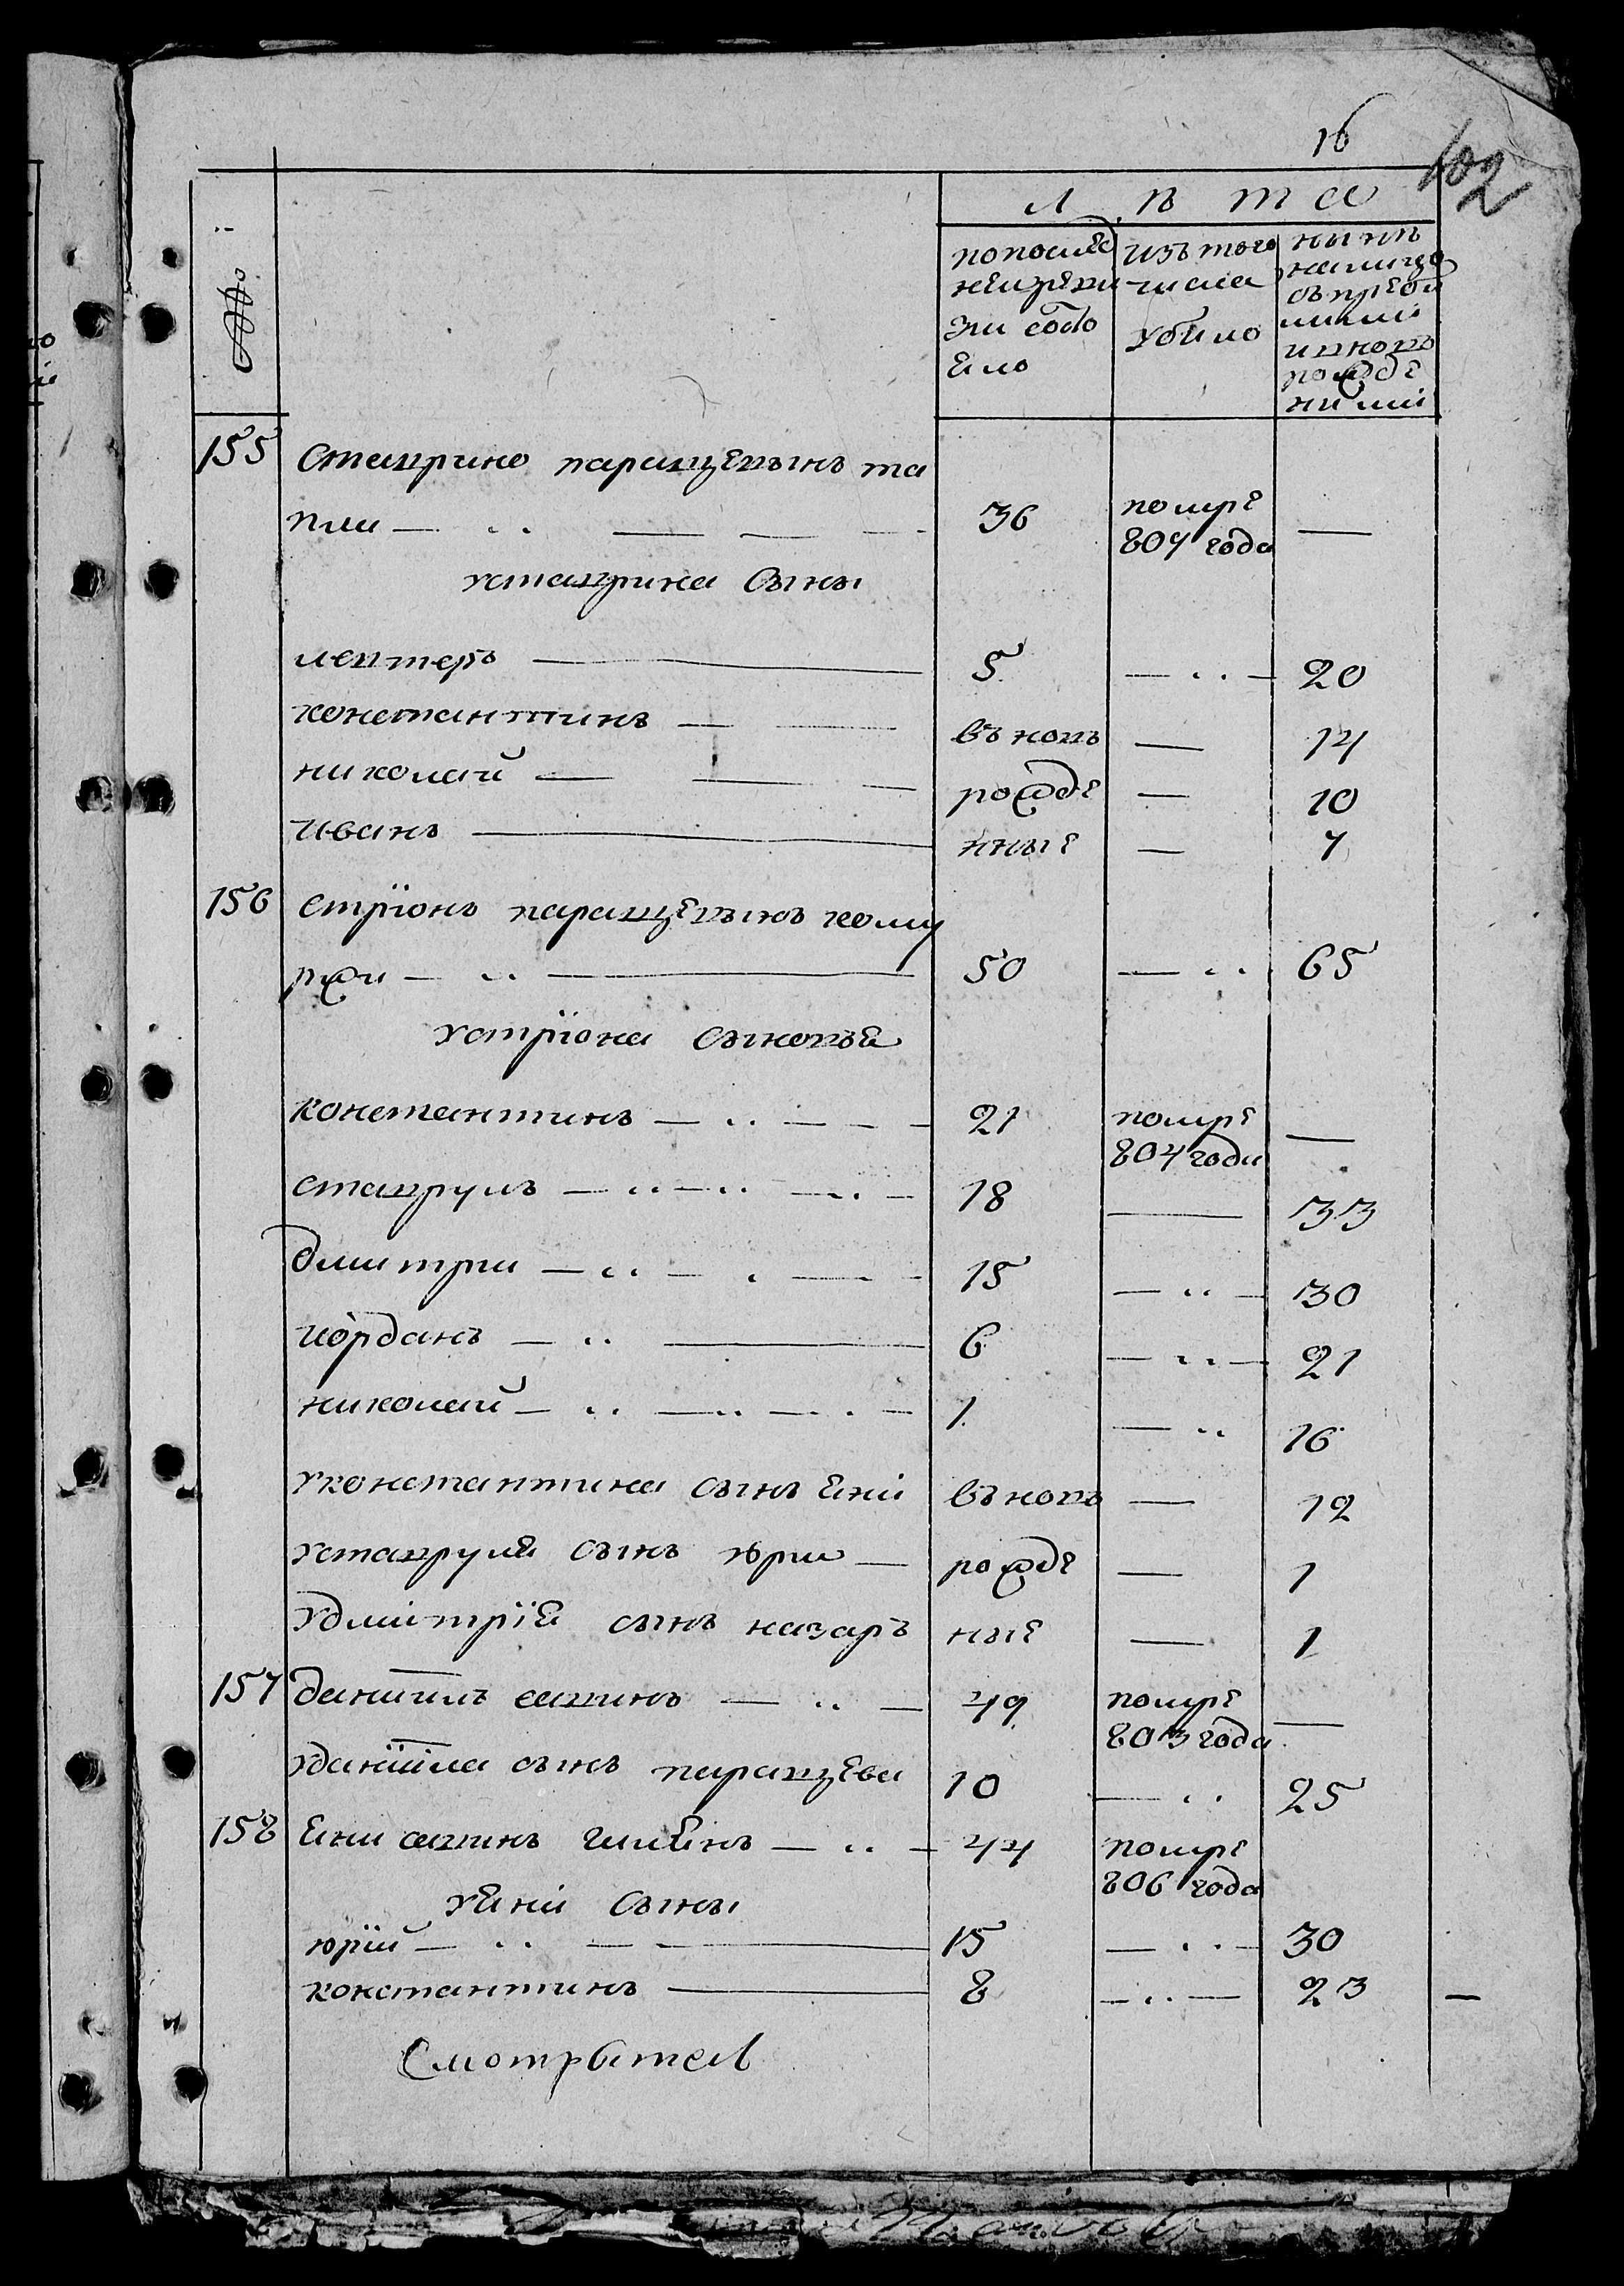 16
102
№:
Л Ѣ т а
попослѣд
неи ревѝ
зіи состо
ѣло
изъ того
числа
убыло
нынѣ
налицо
съ прибы
лыми
ивновь
рожде
ными
155 Ставрино паращевынъ та
пли — 36 помре — 
807 года
уставрина сыны
лефтеръ — 5 — 20
константинъ — въ новъ — 14
николай — рожде — 10
иванъ — нные — 7
156 стріонъ паращевынъ кому
ржи — 50 — 65
устріона сыновья
константинъ — 21 помре —
807 года
ставрулъ — 18 — 33
дмитри — 15 — 30
иорданъ — 6 — 21
николай — 1 — 16
уконстантина сынъ яни въ новъ — 12
уставруля сынъ юрии — рожде — 1
удмитрія сынъ назаръ ные — 1
157 даниилъ савинъ — 49 помре —
803 года
уданіила сынъ паращева 10 — 25
158 яни савинъ — 44 помре
806 года
уяни сыны
юрій — 15 — 30
константинъ — 8 — 23 —
Смотрытел